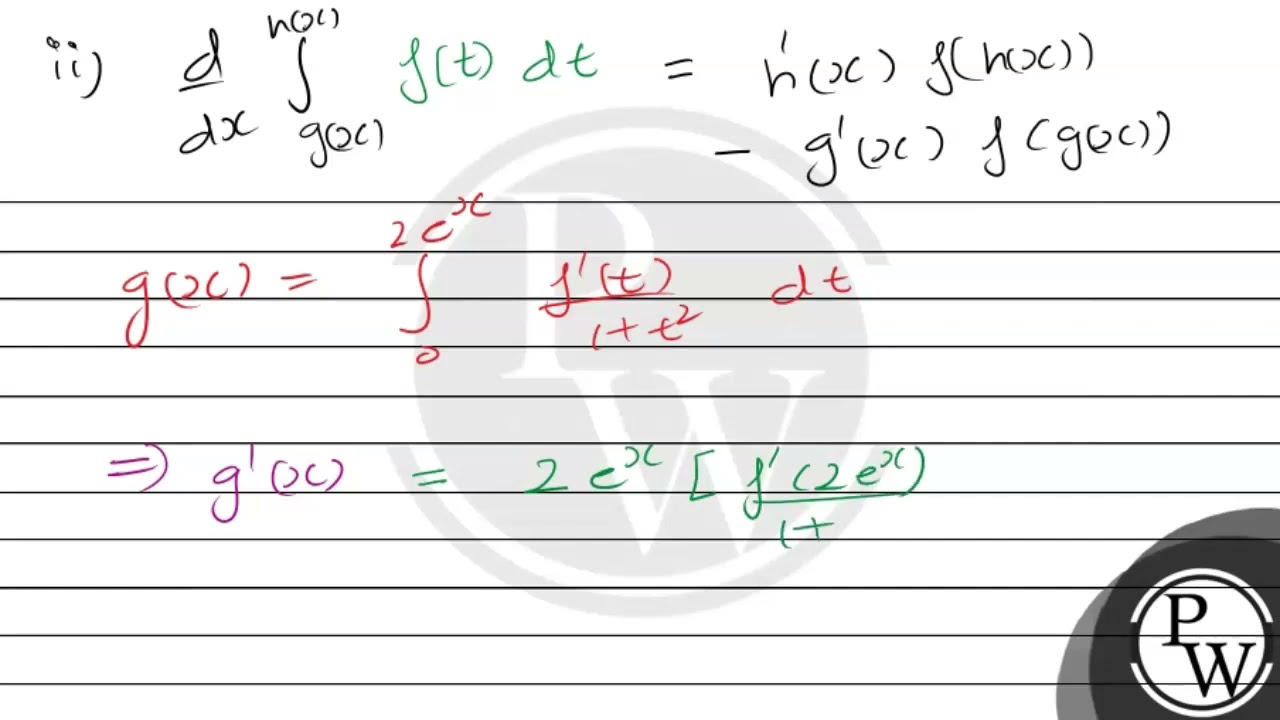 ii) d/dx ∫_{g(x)}^{h(x)} f(t) dt = h'(x) f(h(x))
- g'(x) f(g(x))
g(x) = ∫_0^{2e^x} f'(t)/(1+t²) dt
⇒ g'(x) = 2e^x [ f'(2e^x)/(1+
PW
PW